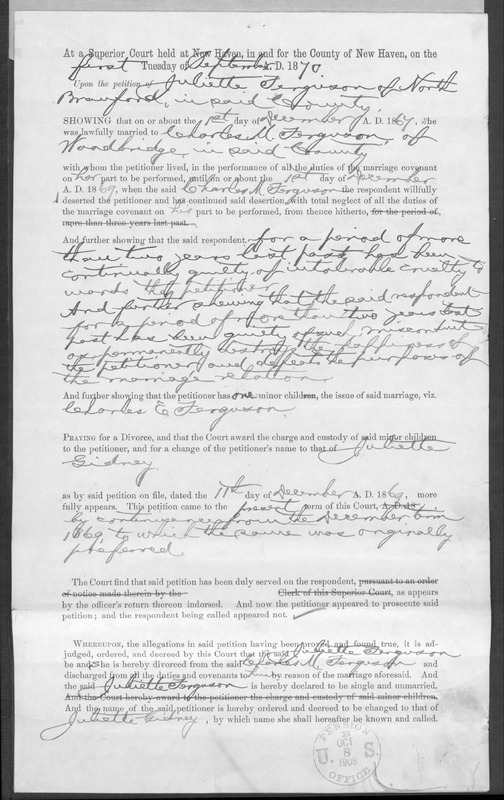 At a Superior Court held at New Haven, in and for the County of New Haven, on the
first Tuesday of September A. D. 1870.
Upon the petition of Juliette Ferguson of North
Branford, in said County,
SHOWING that on or about the 1st day of December A. D. 1867, she
was lawfully married to Charles M. Ferguson, of
Woodbridge in said County
with whom the petitioner lived, in the performance of all the duties of the marriage covenant
on her part to be performed, until on or about the 1st day of December
A. D. 1869, when the said Charles M Ferguson the respondent willfully
deserted the petitioner and has continued said desertion, with total neglect of all the duties of
the marriage covenant on his part to be performed, from thence hitherto, for the period of
more than three years last past.
And further showing that the said respondent for a period of more
than two years last past has been
continually guilty of intolerable cruelty to
wards the petitioner
And further showing that the said respondent
for a period of more than two years last
past has been guilty of such misconduct
as permanently destroys the happiness of
the petitioner and defeats the purposes of
the marriage relation
And further showing that the petitioner has one minor children, the issue of said marriage, viz.
Charles E Ferguson
PRAYING for a Divorce, and that the Court award the charge and custody of said minor children
to the petitioner, and for a change of the petitioner's name to that of Juliette
Gidney
as by said petition on file, dated the 11th day of December A. D. 1869, more
fully appears. This petition came to the present term of this Court, A. D. 18
by continuance from the December term
1869, to which the same was originally
preferred
The Court find that said petition has been duly served on the respondent, pursuant to an order
of notice made therein by the Clerk of this Superior Court, as appears
by the officer's return thereon indorsed. And now the petitioner appeared to prosecute said
petition; and the respondent being called appeared not.
WHEREUPON, the allegations in said petition having been proved and found true, it is ad-
judged, ordered, and decreed by this Court that the said Juliette Ferguson
be and she is hereby divorced from the said Charles M. Ferguson and
discharged from all the duties and covenants to him by reason of the marriage aforesaid. And
the said Juliette Ferguson is hereby declared to be single and unmarried.
And the Court hereby award to the petitioner the charge and custody of said minor children.
And the name of the said petitioner is hereby ordered and decreed to be changed to that of
Juliette Gidney, by which name she shall hereafter be known and called.
PENSION
OCT
8
1908
U. S.
OFFICE